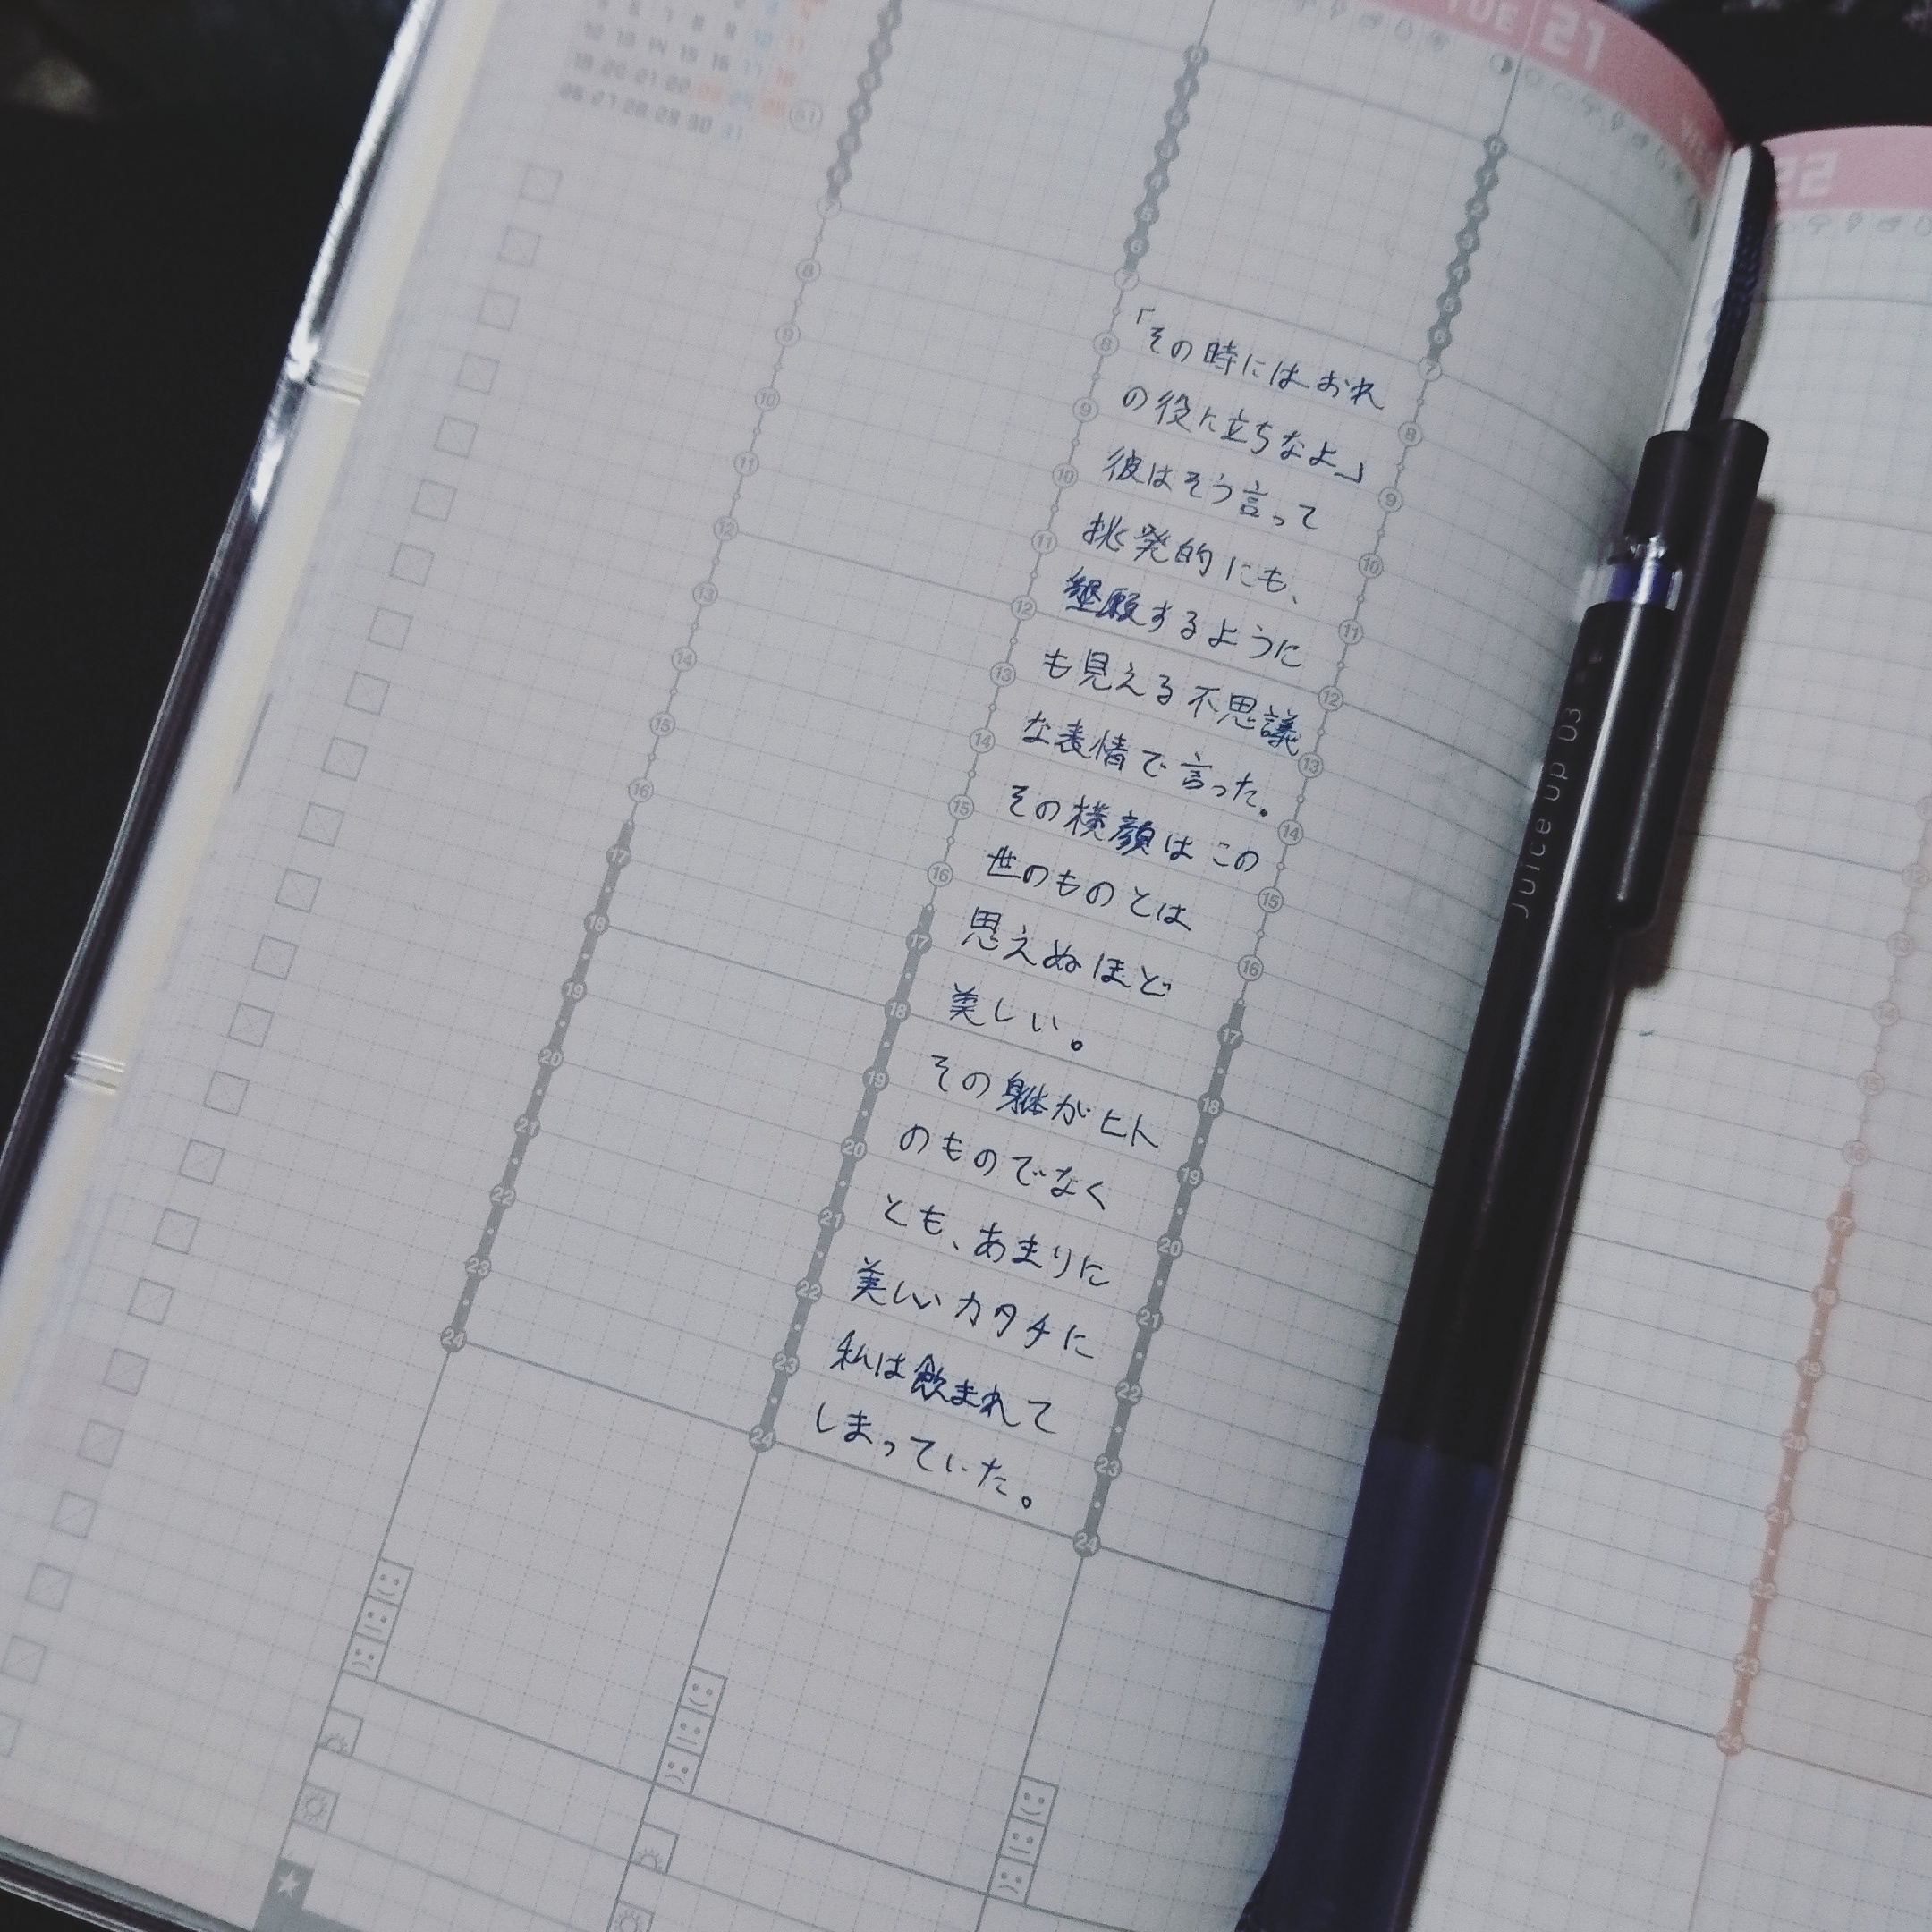 TUE 21
22
「その時にはおれ
の役に立ちなよ」
彼はそう言って
挑発的にも、
懇願するように
も見える不思議
な表情で言った。
その横顔はこの
世のものとは
思えぬほど
美しい。
その躰がヒト
のものでなく
とも、あまりに
美しいカタチに
私は飲まれて
しまっていた。
Juice up 03